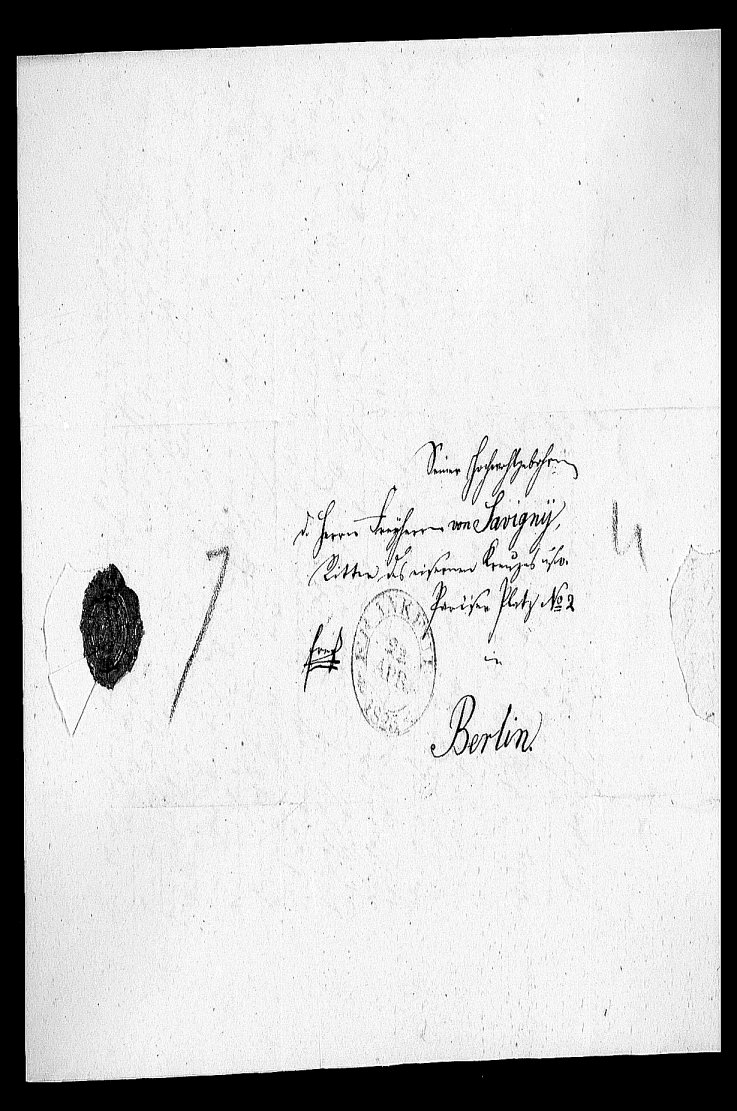 Seiner Hochwohlgebohren
d. Herrn Freyherrn von Savigny,
Ritter des eisernen Kreuzes usw.
Pariser Platz No 2
in
Berlin.
franco
FRANKFURT
22
APR
7
4